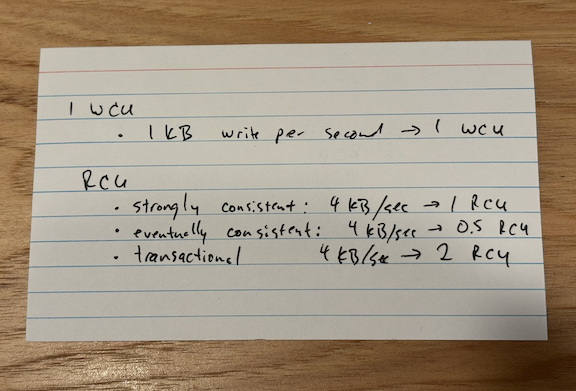 1 WCU
• 1 KB write per second → 1 WCU
RCU
• strongly consistent: 4 KB/sec → 1 RCU
• eventually consistent: 4 KB/sec → 0.5 RCU
• transactional 4 KB/sec → 2 RCU